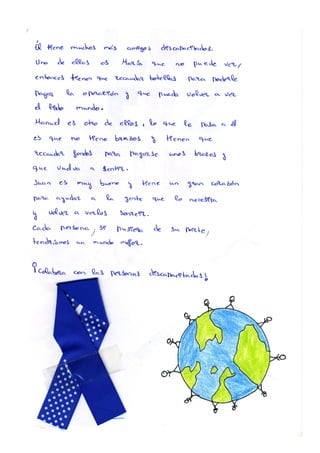 Él tiene muchos más amigos discapacitados.
Uno de ellos es María que no puede ver,
entonces tienen que recaudar botellas para poderle
pagar la operación y que pueda volver a ver
el lindo mundo.
Manuel es otro de ellos, lo que le pasa a él
es que no tiene brazos y tienen que
recaudar fondos para pagarse unos brazos y
que vuelva a sentir.
Juan es muy bueno y tiene un gran corazón
para ayudar a la gente que lo necesita
y volver a verlos sonreír.
Cada persona, si pusiera de su parte,
tendríamos un mundo mejor.
¡Colabora con las personas discapacitadas!